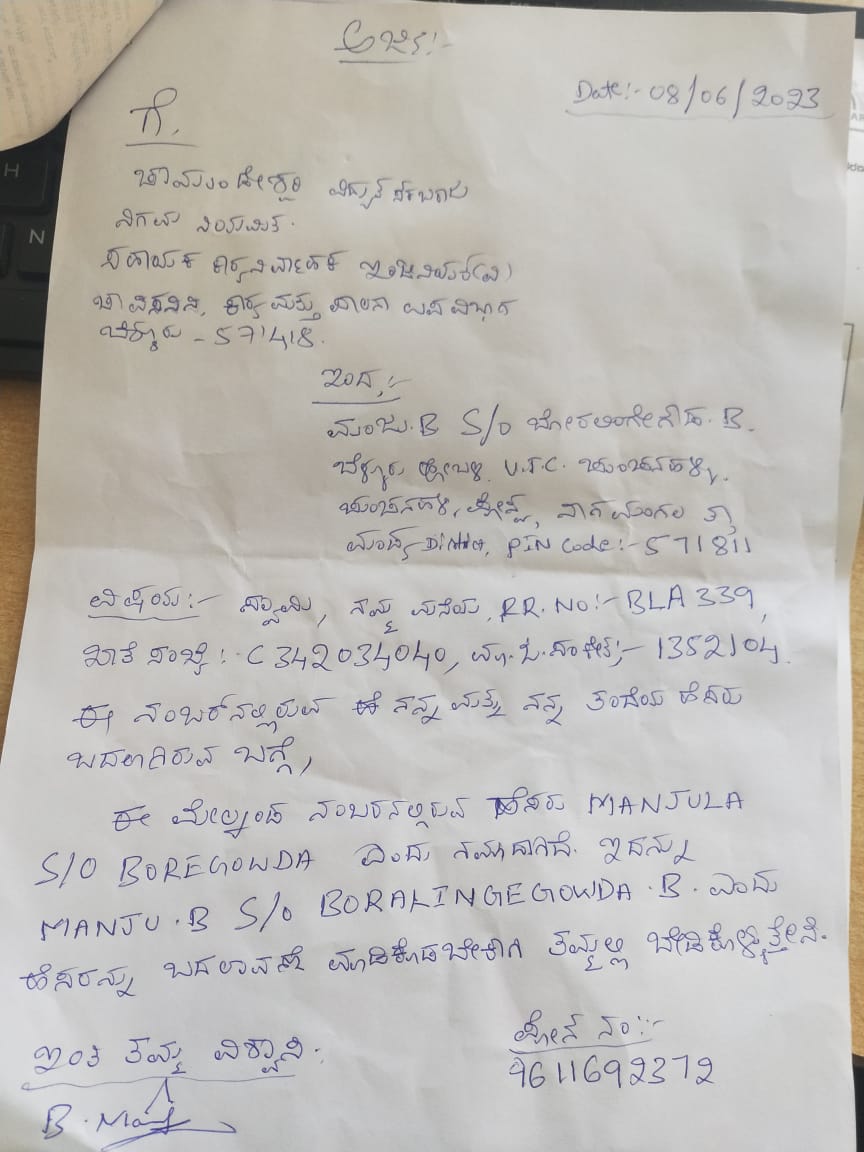 ಅರ್ಜಿ:-
Date:- 08/06/2023
ಗೆ,
ಚಾಮುಂಡೇಶ್ವರಿ ವಿದ್ಯುತ್ ಸರಬರಾಜು
ನಿಗಮ ನಿಯಮಿತ.
ಸಹಾಯಕ ಕಾರ್ಯನಿರ್ವಾಹಕ ಇಂಜಿನಿಯರ್(ವಿ)
ಚಾವಿಸನಿನಿ, ಕಾರ್ಯ ಮತ್ತು ಪಾಲನಾ ಉಪವಿಭಾಗ
ಬೆಳ್ಳೂರು - 571418.
ಇಂದ,:-
ಮಂಜು.B S/O ಬೋರಲಿಂಗೇಗೌಡ.B.
ಬೆಳ್ಳೂರು ಹೋಬಳಿ. ಚುಂಚನಹಳ್ಳಿ.
ಚುಂಚನಹಳ್ಳಿ, ಪೋಸ್ಟ್, ನಾಗಮಂಗಲ ತಾ,
ಮಂಡ್ಯ PIN Code:- 571811
ವಿಷಯ:- ಸ್ವಾಮಿ, ನಮ್ಮ ಮನೆಯ, RR.No:- BLA339,
ಖಾತೆ ಸಂಖ್ಯೆ:- C342034040, ಮಾ.ಓ.ಸಂಕೇತ;- 1352104.
ಈ ನಂಬರ್‌ನಲ್ಲಿರುವ ನನ್ನ ಮತ್ತು ನನ್ನ ತಂದೆಯ ಹೆಸರು
ಬದಲಾಗಿರುವ ಬಗ್ಗೆ,
ಈ ಮೇಲ್ಕಂಡ ನಂಬರನಲ್ಲಿರುವ ಹೆಸರು MANJULA
S/O BOREGOWDA ಎಂದು ನಮೂದಾಗಿದೆ. ಇದನ್ನು
MANJU.B S/O BORALINGEGOWDA.B. ಎಂದು
ಹೆಸರನ್ನು ಬದಲಾವಣೆ ಮಾಡಿಕೊಡಬೇಕಾಗಿ ತಮ್ಮಲ್ಲಿ ಬೇಡಿಕೊಳ್ಳುತ್ತೇನೆ.
ಇಂತಿ ತಮ್ಮ ವಿಶ್ವಾಸಿ.
ಪೋನ್ ನಂ:-
9611692372